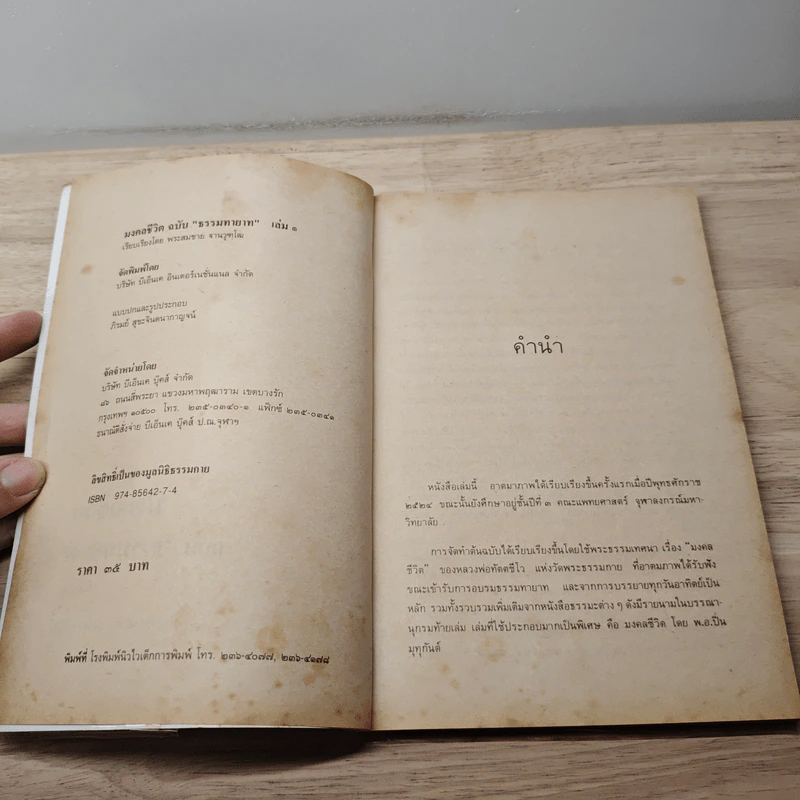 มงคลชีวิต ฉบับ "ธรรมทายาท" เล่ม ๑
เรียบเรียงโดย พระสมชาย ฐานวุฑฺโฒ
จัดพิมพ์โดย
บริษัท บีเอ็นเค อินเตอร์เนชั่นแนล จำกัด
แบบปกและรูปประกอบ
ภิรมย์ สุขะจินตนากาญจน์
จัดจำหน่ายโดย
บริษัท บีเอ็นเค บุ๊คส์ จำกัด
๘๖ ถนนสี่พระยา แขวงมหาพฤฒาราม เขตบางรัก
กรุงเทพฯ ๑๐๕๐๐ โทร. ๒๓๕-๐๓๔๐-๑ แฟ็กซ์ ๒๓๕-๐๓๔๑
ธนาณัติสั่งจ่าย บีเอ็นเค บุ๊คส์ ป.ณ.จุฬาฯ
ลิขสิทธิ์เป็นของมูลนิธิธรรมกาย
ISBN 974-85642-7-4
ราคา ๓๕ บาท
พิมพ์ที่ โรงพิมพ์นิวไวเต็กการพิมพ์ โทร. ๒๓๖-๔๐๗๗, ๒๓๖-๔๑๗๘
คำนำ
หนังสือเล่มนี้ อาตมาภาพได้เรียบเรียงขึ้นครั้งแรกเมื่อปีพุทธศักราช
๒๕๒๔ ขณะนั้นยังศึกษาอยู่ชั้นปีที่ ๓ คณะแพทยศาสตร์ จุฬาลงกรณ์มหา-
วิทยาลัย
การจัดทำต้นฉบับได้เรียบเรียงขึ้นโดยใช้พระธรรมเทศนา เรื่อง "มงคล
ชีวิต" ของหลวงพ่อทัตตชีโว แห่งวัดพระธรรมกาย ที่อาตมภาพได้รับฟัง
ขณะเข้ารับการอบรมธรรมทายาท และจากการบรรยายทุกวันอาทิตย์เป็น
หลัก รวมทั้งรวบรวมเพิ่มเติมจากหนังสือธรรมะต่าง ๆ ดังมีรายนามในบรรณา-
นุกรมท้ายเล่ม เล่มที่ใช้ประกอบมากเป็นพิเศษ คือ มงคลชีวิต โดย พ.อ.ปิ่น
มุทุกันต์